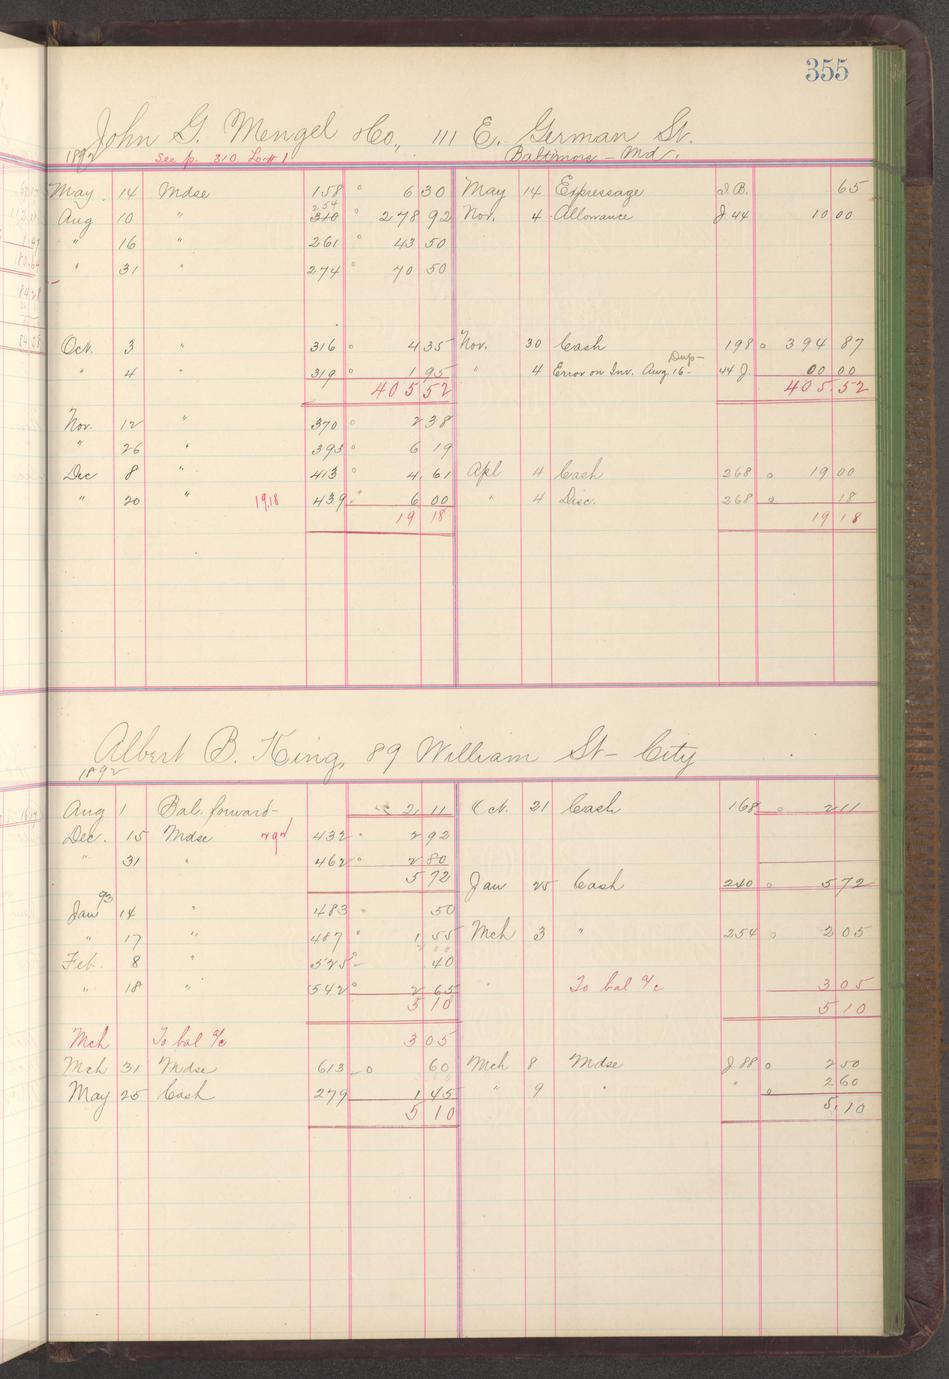 355
John G. Mengel & Co., 111 E. German St.
1892 See p. 310 Baltimore - Md.
May 14 Mdse 158 6 30 May 14 Expressage J.B. 65
254
Aug 10 " 310 278 92 Nov. 4 Allowance J 44 10 00
" 16 " 261 43 50
" 31 " 274 70 50
Oct. 3 " 316 4 35 Nov. 30 Cash 198 394 87
" 4 " 319 1 95 " 4 Error on Inv. Aug. 16 - Dup- 44 J. 00 00
405 52 405.52
Nov. 12 " 370 2 38
" 26 " 393 6 19
Dec 8 " 413 4.61 Apl 4 Cash 268 19 00
" 20 " 19.18 439 6 00 " 4 Disc. 268 18
19 18 19 18
Albert B. King, 89 William St - City
1892
Aug 1 Bal. forward - 2 11 Oct. 21 Cash 168 2 11
Dec. 15 Mdse 292 432 2 92
" 31 " 462 2 80
5 72 Jan 25 Cash 240 5 72
Jan 93 14 " 483 50
" 17 " 487 1 55 Mch 3 " 254 2 05
Feb. 8 " 525 40
" 18 " 542 2 65 " To bal a/c 3 05
5 10 5 10
Mch To bal a/c 3 05
Mch 31 Mdse 613 60 Mch 8 Mdse J 88 2 50
May 25 Cash 279 1 45 " 9 " " 2 60
5 10 5.10